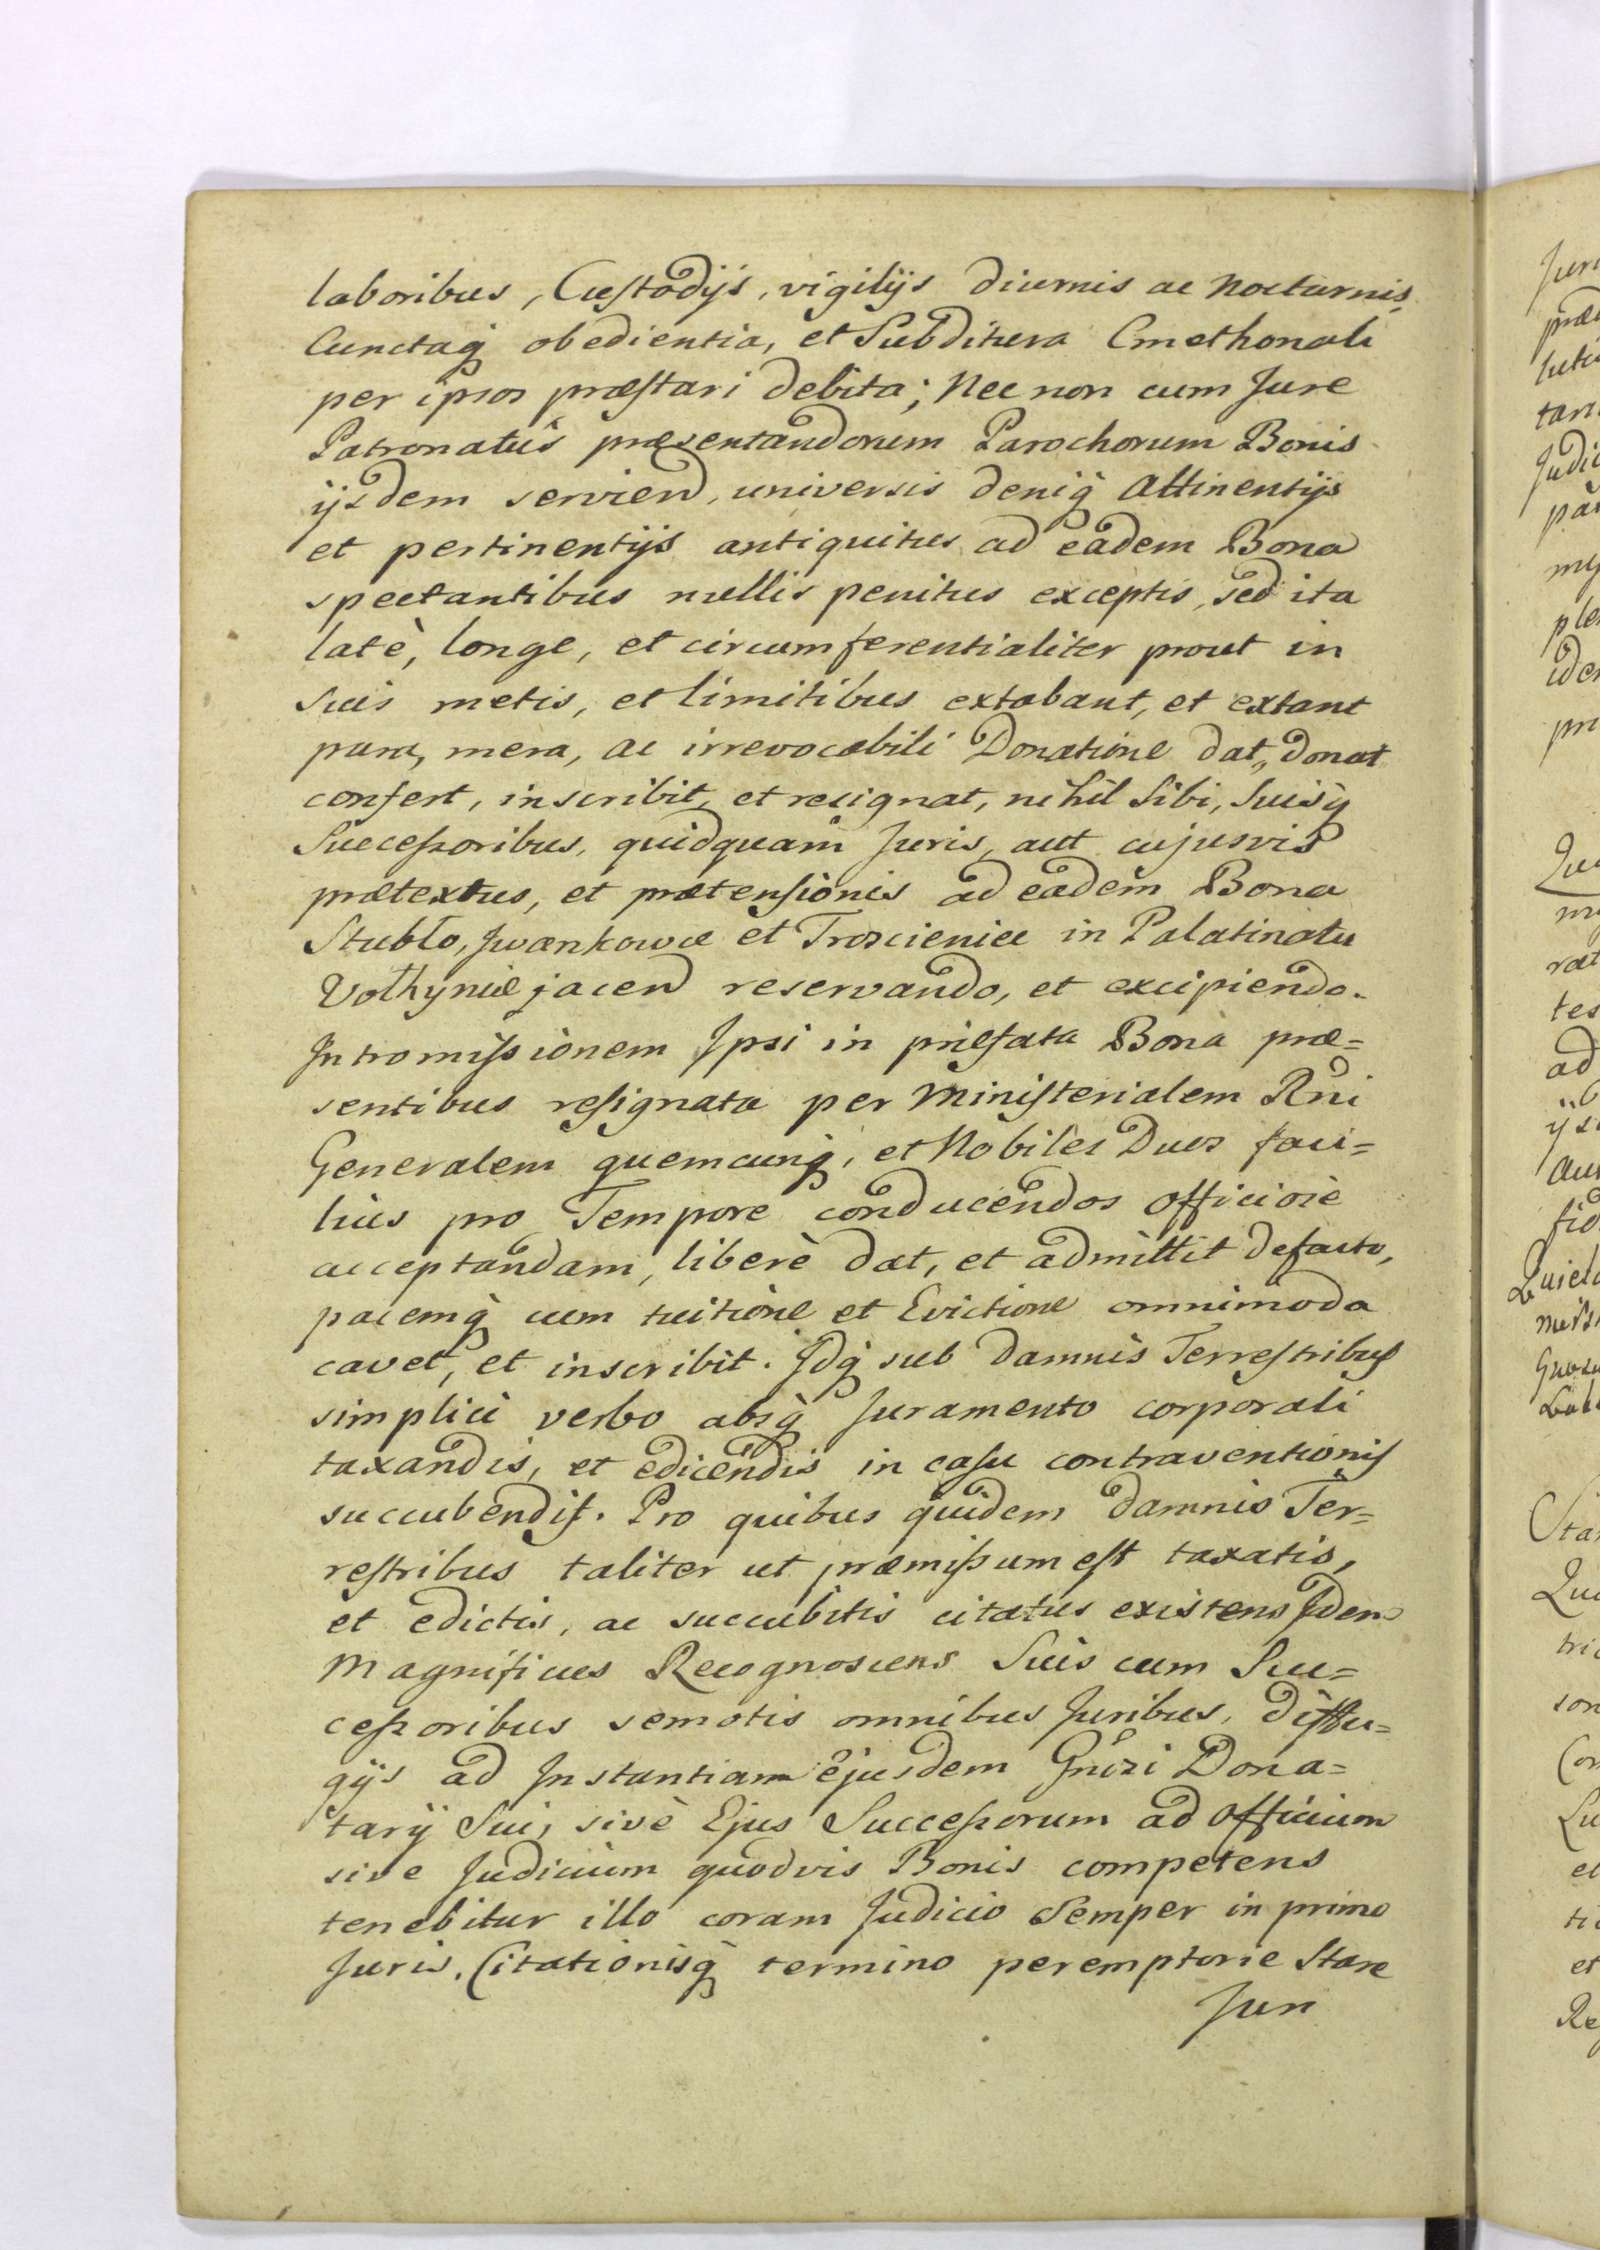 laboribus, Custodijs, vigilijs diurnis ac Nocturnis,
Cunctaq́ obedientia, et Subditura Cmethonali
per ipsos præstari debita; Nec non cum Jure
Patronatûs præsentandorum Parochorum Bonis
ijsdem serviend, universis deniq́ Attinentijs
et pertinentijs antiquitus ad eadem Bona
spectantibus nullis penitus exceptis, sed ita
latè, longe, et circumferentialiter prout in
suis metis, et limitibus extabant, et extant
pura, mera, ac irrevocabili Donatione dat, donat
confert, inscribit, et resignat, nihil Sibi, Suisq́
Successoribus, quidquam Juris, aut cujusvis
prætextus, et prætensionis ad eadem Bona
Stubło, Jwankowce et Troscienice in Palatinatu
Volhyniæ jacend reservando, et excipiendo.
Intromissionem Ipsi in præfata Bona præ=
sentibus resignata per Ministerialem Rni
Generalem quemcunq́, et Nobiles Duos faci=
lius pro Tempore conducendos officiosè
acceptandam, liberè dat, et admittit defacto,
pacemq́ cum tuitione et Evictione omnimoda
cavet, et inscribit. Idq́ sub damnis Terrestribus
simplici verbo absq́ Juramento corporali
taxandis, et edicendis in casu contraventionis
succubendis. Pro quibus quidem damnis Ter=
restribus taliter ut præmissum est taxatis,
et edictis, ac succubitis citatus existens Idem
Magnificus Recognoscens Suis cum Suc=
cessoribus semotis omnibus Juribus, diffu=
gijs ad Instantiam ejusdem Gnrsi Dona=
tarij Sui, sivè Ejus Successorum ad officium
sive Judicium quodvis Bonis competens
tenebitur illo coram Judicio Semper in primo
Juris, Citationisq́ termino peremptorie Stare
Juri